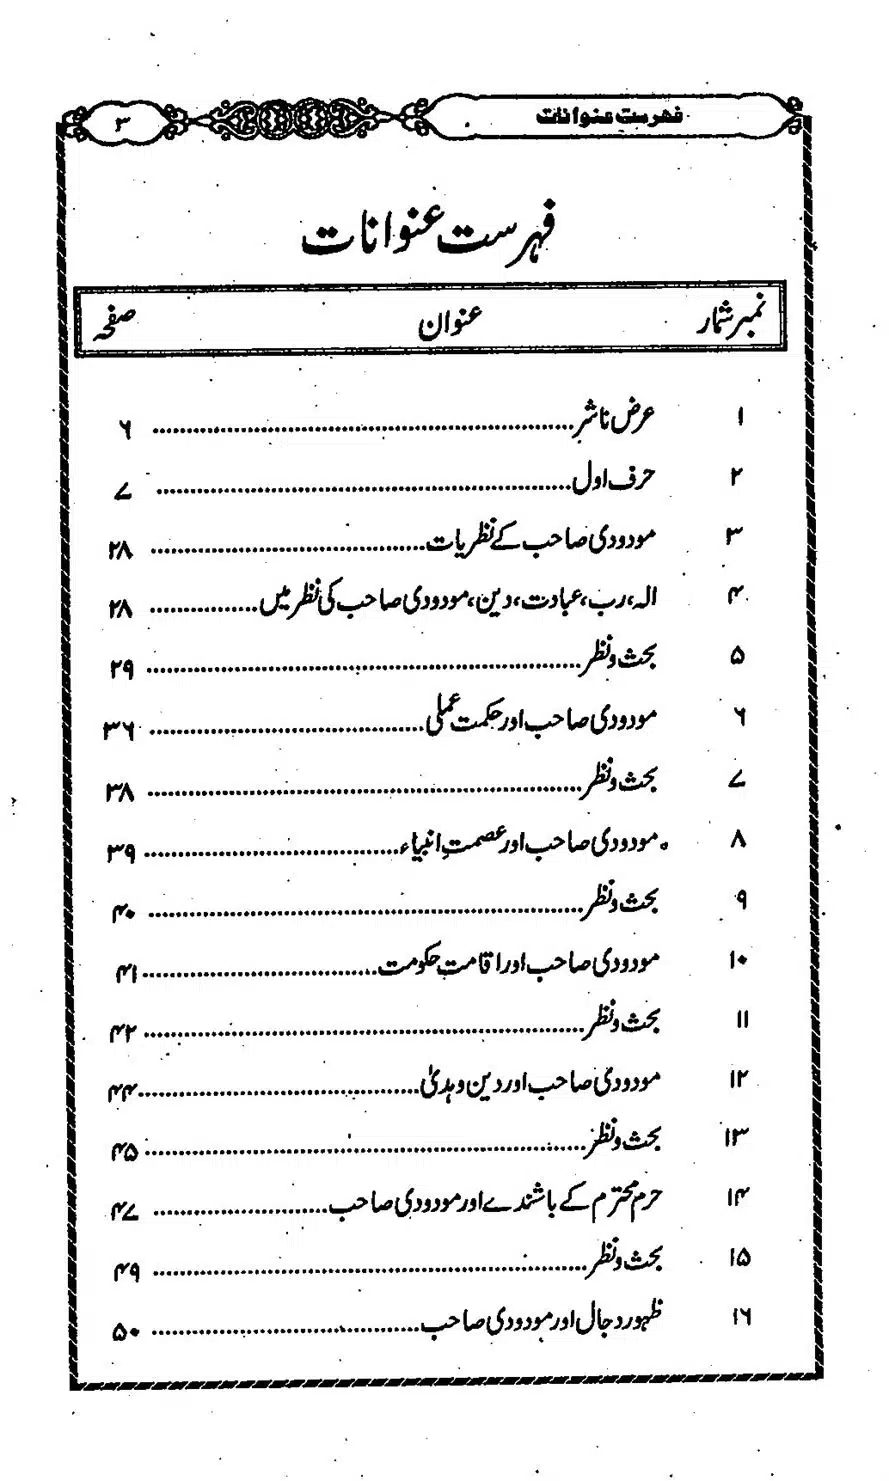 فہرست عنوانات ۳
فہرست عنوانات
نمبر شمار عنوان صفحہ
۱ عرض ناشر ........ ۶
۲ حرف اول ........ ۷
۳ مودودی صاحب کے نظریات ........ ۲۸
۴ الہ، رب، عبادت، دین، مودودی صاحب کی نظر میں ........ ۲۸
۵ بحث و نظر ........ ۲۹
۶ مودودی صاحب اور حکمت عملی ........ ۳۶
۷ بحث و نظر ........ ۳۸
۸ مودودی صاحب اور عصمتِ انبیاء ........ ۳۹
۹ بحث و نظر ........ ۴۰
۱۰ مودودی صاحب اور اقامتِ حکومت ........ ۴۱
۱۱ بحث و نظر ........ ۴۲
۱۲ مودودی صاحب اور دین و ہدیٰ ........ ۴۴
۱۳ بحث و نظر ........ ۴۵
۱۴ حرم محترم کے باشندے اور مودودی صاحب ........ ۴۷
۱۵ بحث و نظر ........ ۴۹
۱۶ ظہور دجال اور مودودی صاحب ........ ۵۰